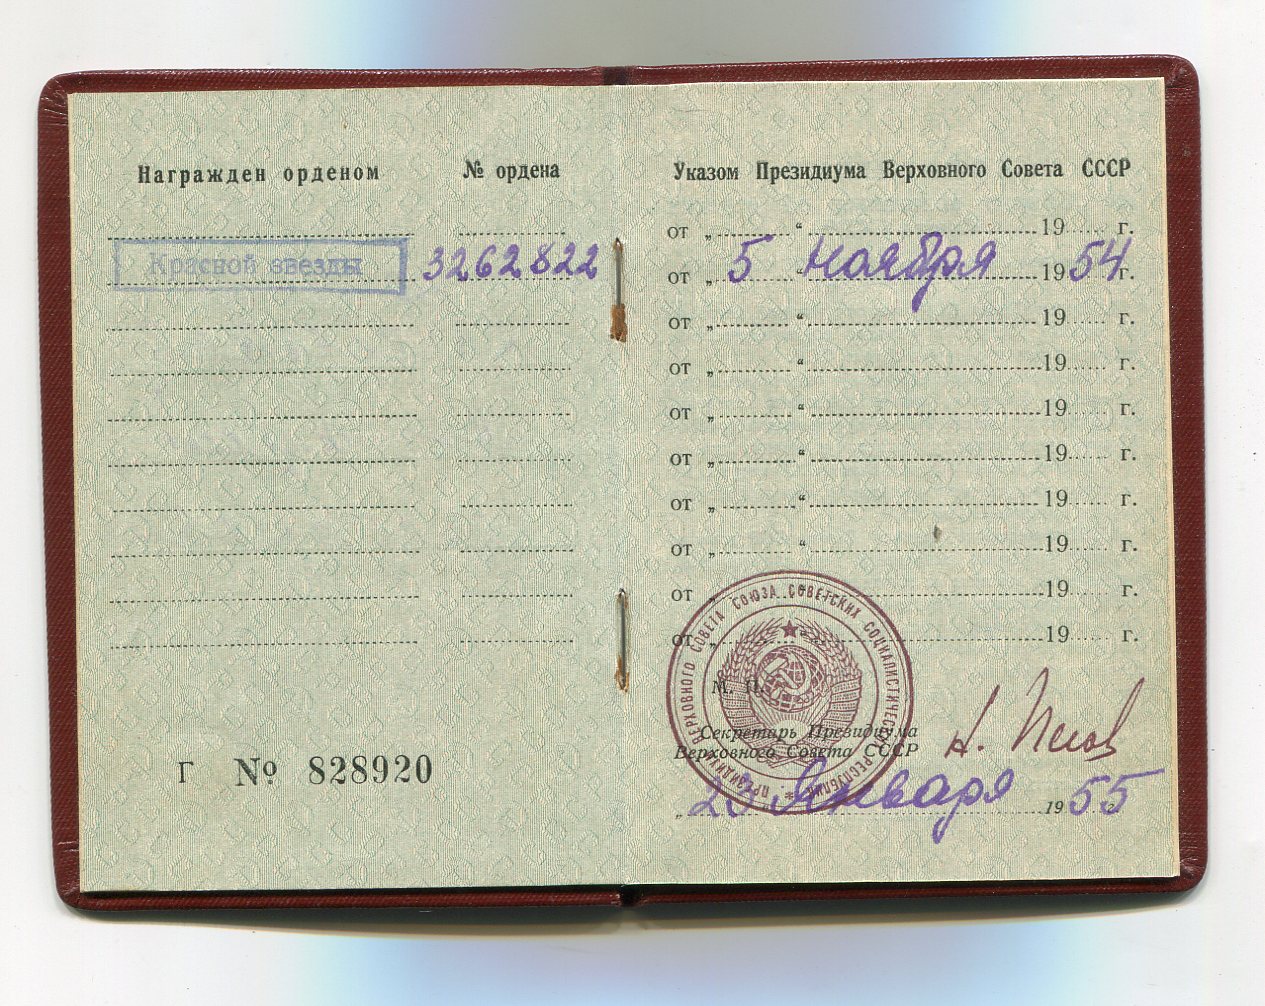 Награжден орденом № ордена
Красной звезды 3262822
Г № 828920
Указом Президиума Верховного Совета СССР
от „ “ 19 г.
от „ 5 “ Ноября 1954 г.
от „ “ 19 г.
от „ “ 19 г.
от „ “ 19 г.
от „ “ 19 г.
от „ “ 19 г.
от „ “ 19 г.
от „ “ 19 г.
от „ “ 19 г.
М. П.
ПРЕЗИДИУМ ВЕРХОВНОГО СОВЕТА СОЮЗА СОВЕТСКИХ СОЦИАЛИСТИЧЕСКИХ РЕСПУБЛИК
Секретарь Президиума
Верховного Совета СССР
Января 1955